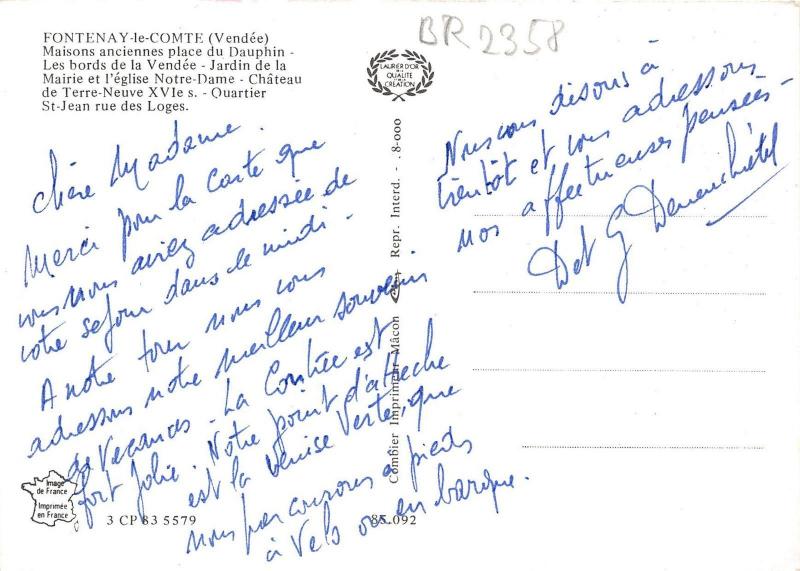 FONTENAY-le-COMTE (Vendée)
Maisons anciennes place du Dauphin -
Les bords de la Vendée - Jardin de la
Mairie et l'église Notre-Dame - Château
de Terre-Neuve XVIe s. - Quartier
St-Jean rue des Loges.
BR 2358
LAURIER D'OR
DE LA
QUALITÉ
CRÉATION
Chère Madame.
Merci pour la Carte que
vous nous aviez adressée de
votre séjour dans le midi -
A notre tour nous vous
adressons notre meilleur souvenir
de Vacances - La Contrée est
fort Jolie. Notre point d'attache
est la Venise Verte, que
nous parcourons à pieds
à Velo ou en barque.
Nous vous disons à
bientôt et vous adressons
nos affectueuses pensées -
Combier Imprimeur Mâcon
Repr. Interd. - .8-000
Image
de France
Imprimée
en France
3 CP 83 5579
85.092